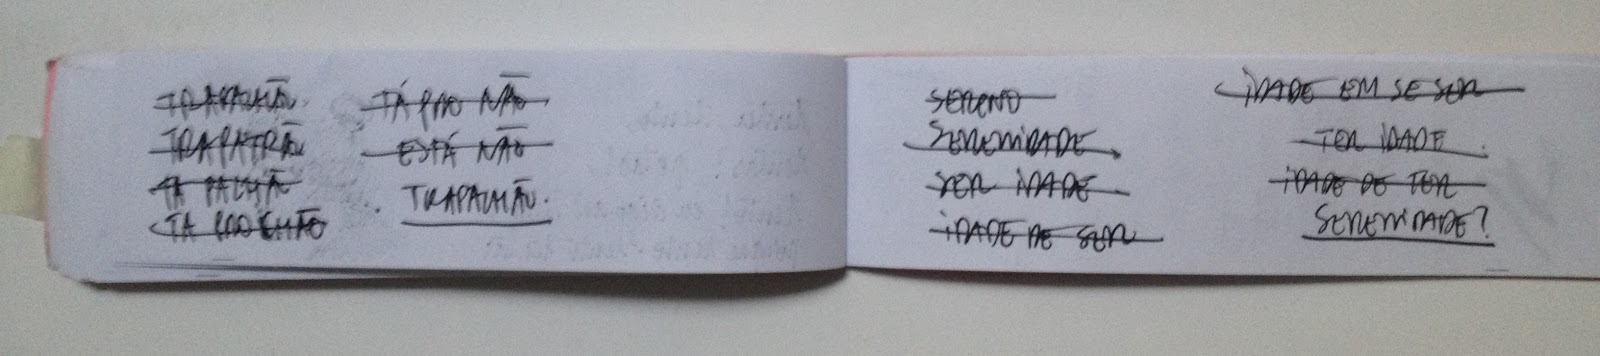 TRAPALHÃO.
TRAPATRÃO
TÁ PALHÃO
TÁ PRO CHÃO
TÁ PRO NÃO
ESTÁ NÃO
TRAPALHÃO.
SERENO
SERENIDADE
SER IDADE
IDADE DE SER
IDADE EM SE SER
TER IDADE.
IDADE DE TER
SERENIDADE?